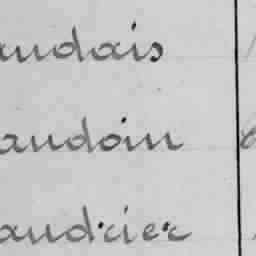 audais
audoin
audrier